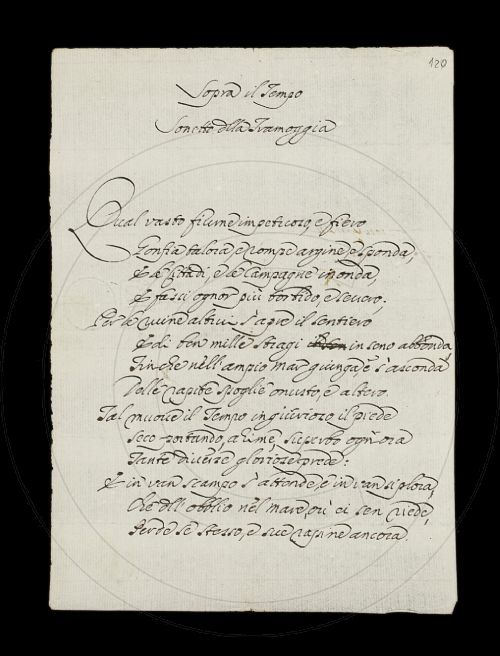 120
Sopra il Tempo
Sonetto della Tramoggia
Qual vasto fiume impetuoso, e fiero
Gonfia talora, e rompe argine, e sponda,
E le Città, e le Campagne inonda,
E fassi ognor più torbido, e severo;
Per le ruine altrui s'apre il sentiero
E di ben mille stragi in seno abbonda,
Finchè nell'ampio mar giunga, e s'asconda
Delle rapite spoglie onusto, e altero.
Tal muove il Tempo ingiurioso il piede
Seco portando, ahimè, superbo ogn'ora
Tante diverse gloriose prede:
E in van scampo s'attende, e in van si plora,
Che dell'obblio nel mare, ov'ei sen riede,
Perde se stesso, e sue rapine ancora.